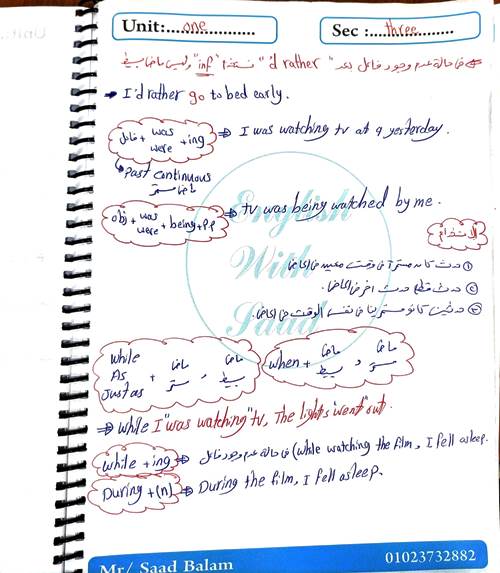 Unit:......one......
Sec :......three......
في حالة عدم وجود فاعل بعد "d rather' " نستخدم "inf" وليس ماضي بسيط
I'd rather go to bed early.
فاعل + was were + ing ⇒ I was watching tv at 9 yesterday.
past continuous
ماضي مستمر
obj + was were + being + p.p ⇒ tv was being watched by me.
الاستخدام
① حدث كان مستمر في وقت معين في الماضي
② حدث قطع حدث اخر في الماضي.
③ حدثين كانوا مستمرين في نفس الوقت في الماضي.
While As Just as + ماضي مستمر , ماضي بسيط
when + ماضي بسيط , ماضي مستمر
⇒ While I "was watching" tv, The lights "went" out.
while + ing ⇒ في حالة عدم وجود فاعل (while watching the film, I fell asleep.
During + (n) ⇒ During the film, I fell asleep.
English
With
Saad
Mr/ Saad Balam
01023732882